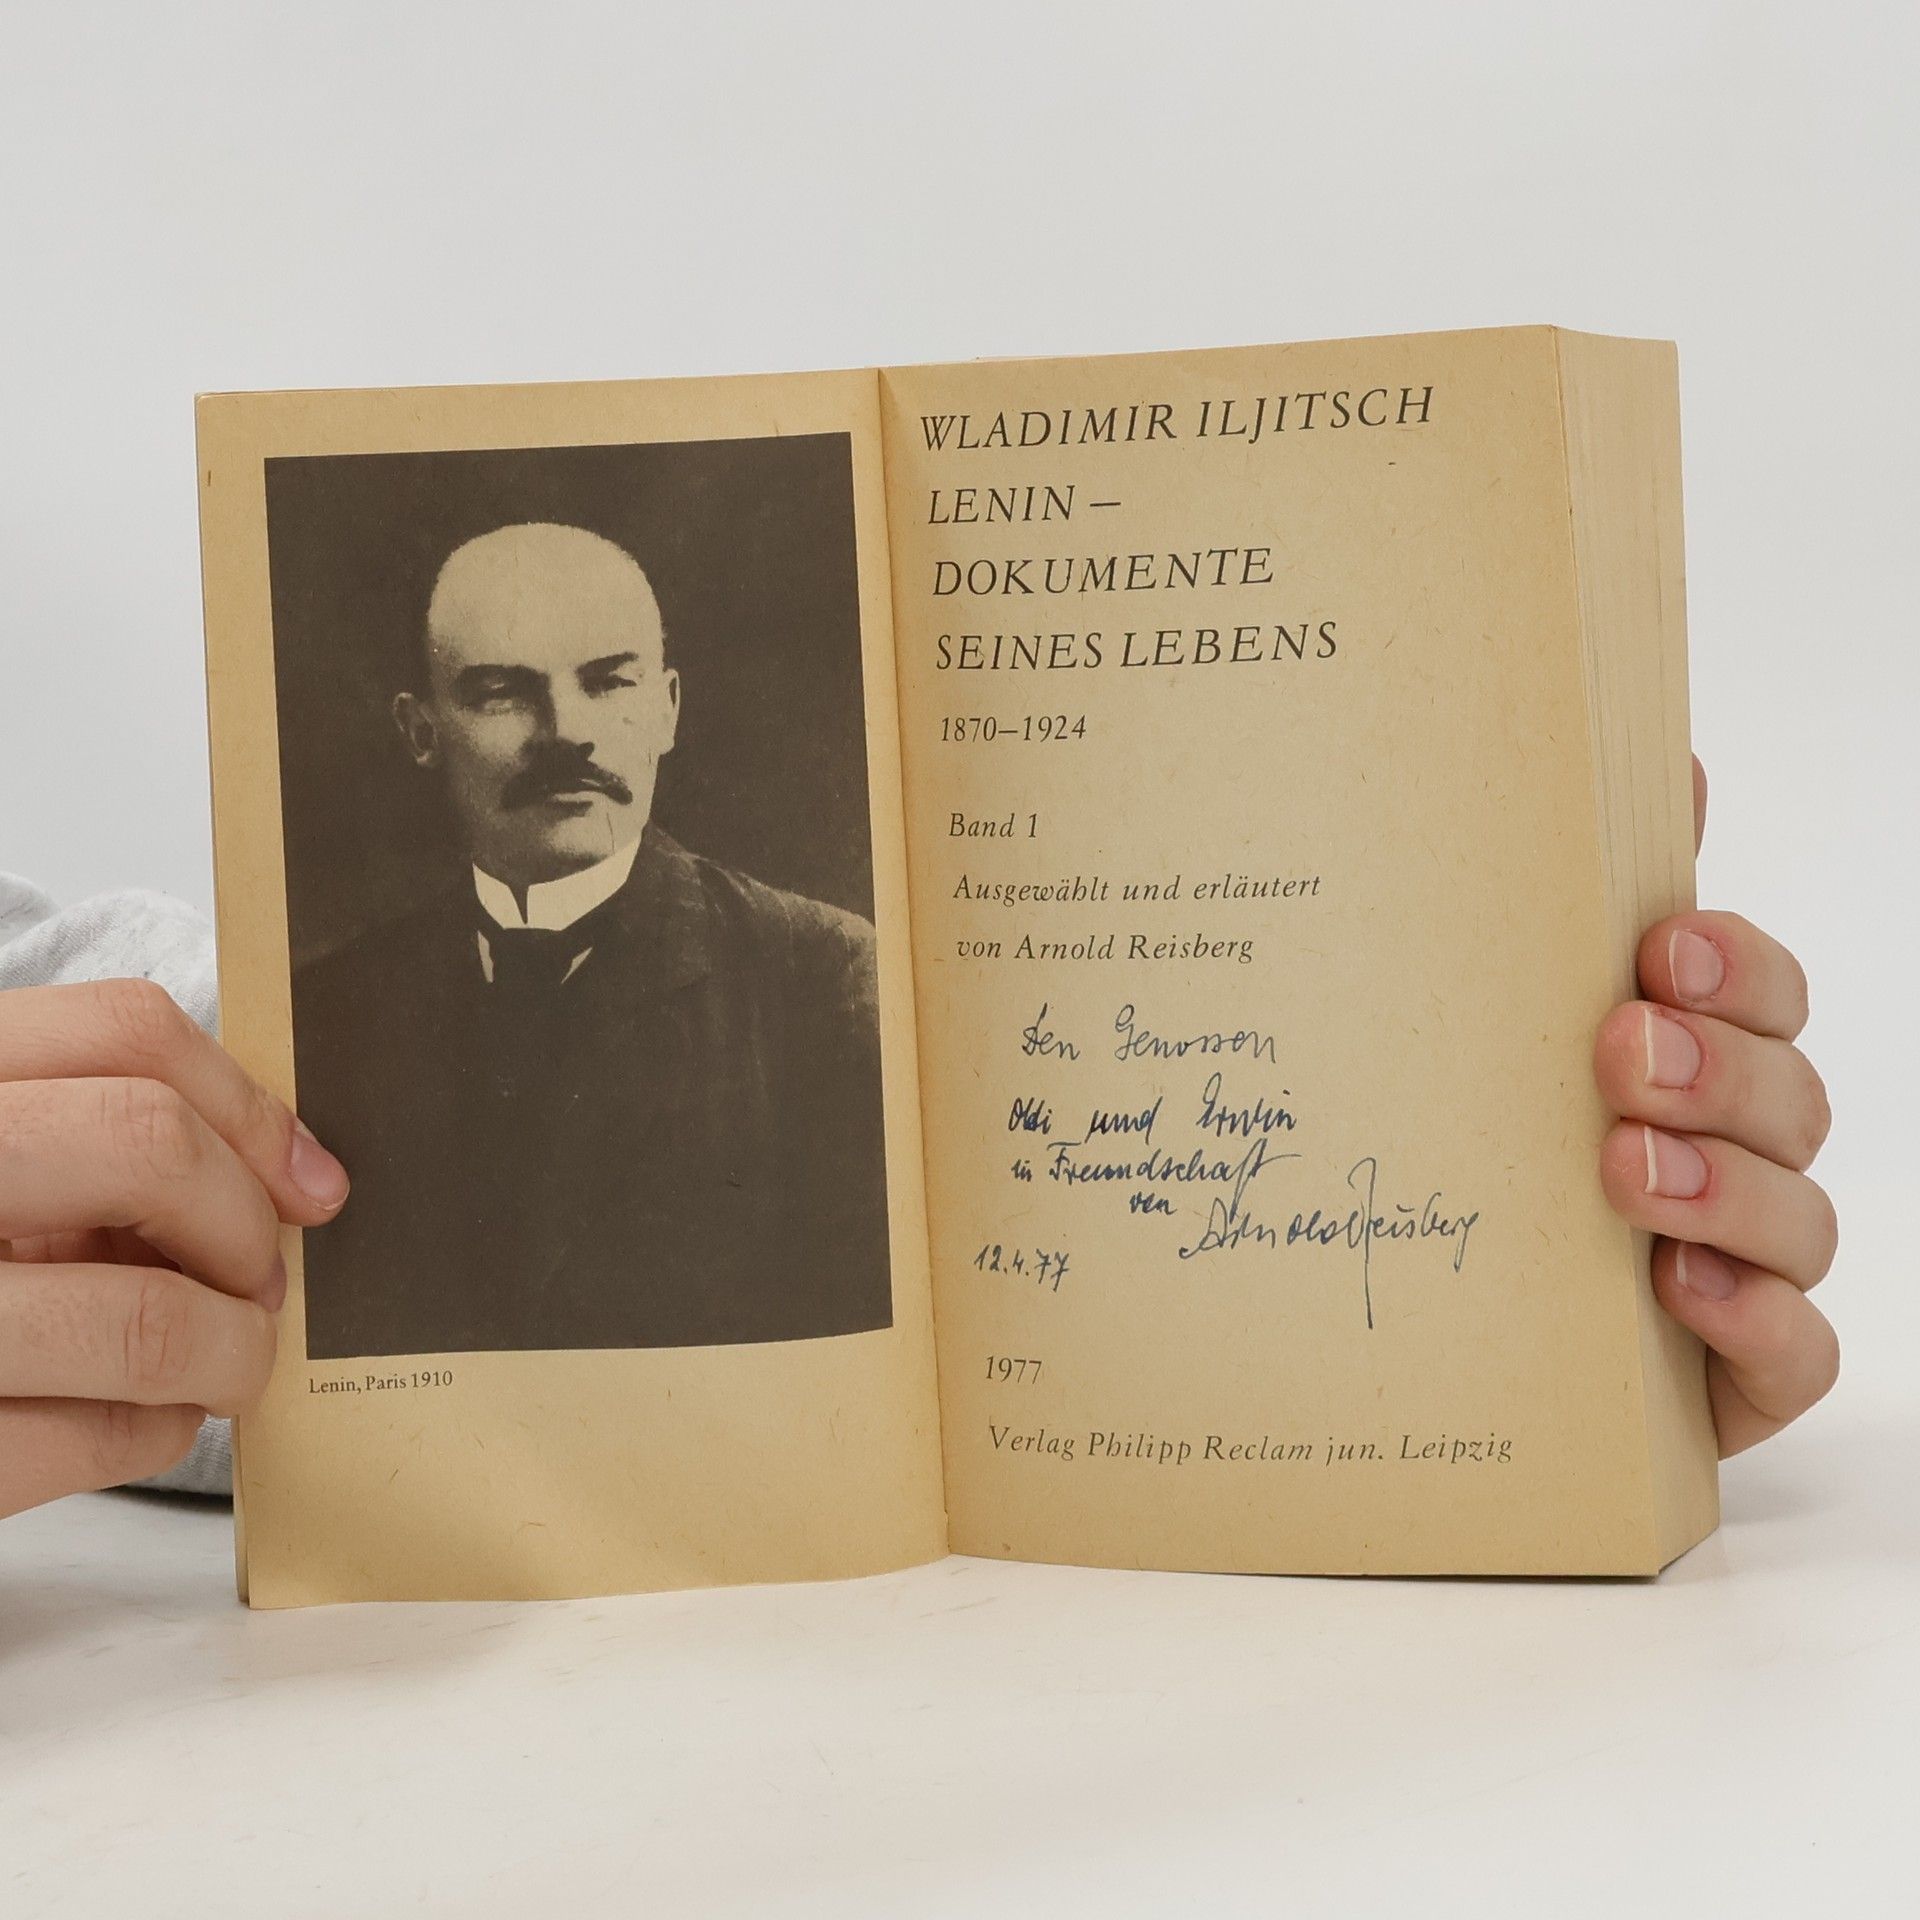 Lenin, Paris 1910
WLADIMIR ILJITSCH
LENIN –
DOKUMENTE
SEINES LEBENS
1870–1924
Band 1
Ausgewählt und erläutert
von Arnold Reisberg
Den Genossen
und Erwin
in Freundschaft
von
Arnold Reisberg
12.4.77
1977
Verlag Philipp Reclam jun. Leipzig